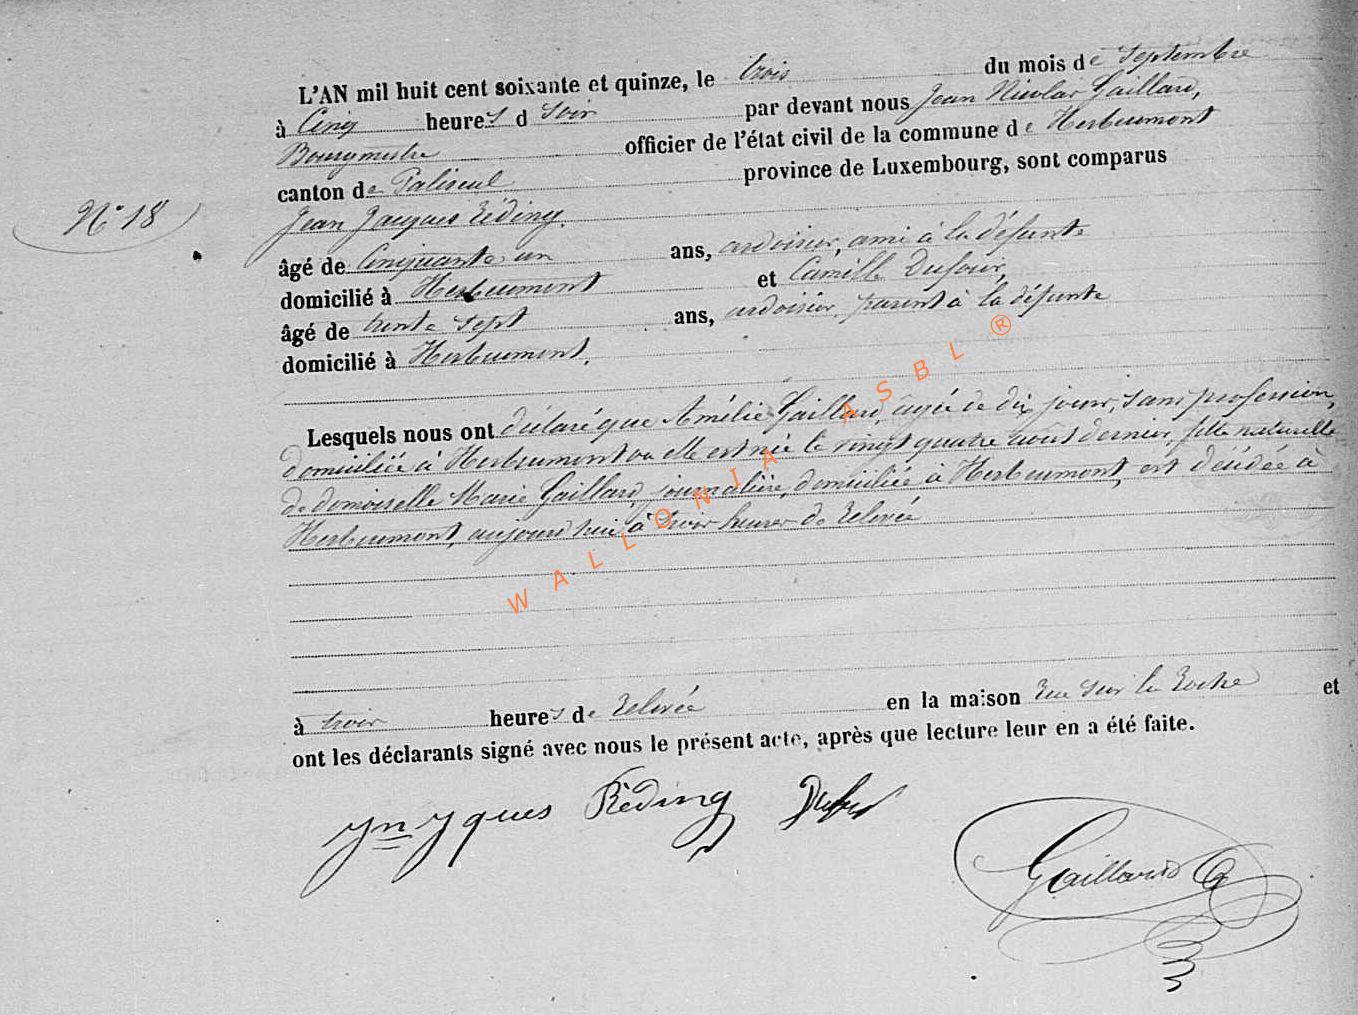 L'AN mil huit cent soixante et quinze, le trois du mois de Septembre
à Cinq heures d soir par devant nous Jean Nicolas Gaillard,
Bourgmestre officier de l'état civil de la commune de Herbeumont
canton de Paliseul province de Luxembourg, sont comparus
N° 18
Jean Jacques Réding.
âgé de Cinquante un ans, ardoisier, ami à la défunte
domicilié à Herbeumont et Camille Dufour,
âgé de trente sept ans, ardoisier, parent à la défunte
domicilié à Herbeumont.
Lesquels nous ont déclaré que Amélie Gaillard, âgée de dix jours, sans profession,
domiciliée à Herbeumont où elle est née le vingt quatre août dernier, fille naturelle
de demoiselle Marie Gaillard, journalière, domiciliée à Herbeumont, est décédée à
Herbeumont, aujourd'hui à trois heures de relevée
à trois heures de relevée en la maison rue sur la Roche et
ont les déclarants signé avec nous le présent acte, après que lecture leur en a été faite.
Jn Jques Réding Dufour
Gaillard
WALLONIA ASBL ®